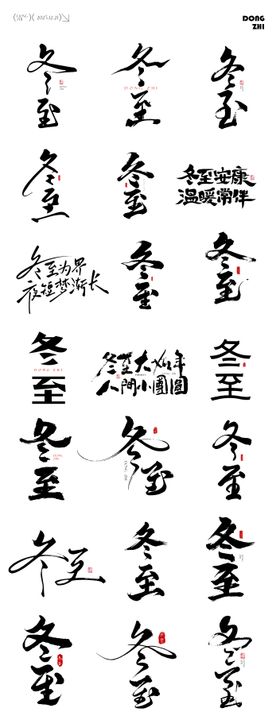 DONG
ZHI
冬至
冬至
DONG ZHI
冬至
冬至
冬至
冬至安康
温暖常伴
冬至为界
夜短梦渐长
冬至
冬至
冬至
DONG ZHI
冬至大如年
人间小团圆
冬至
冬至
冬至
冬至
冬至
冬至
冬至
冬至
冬至
冬至